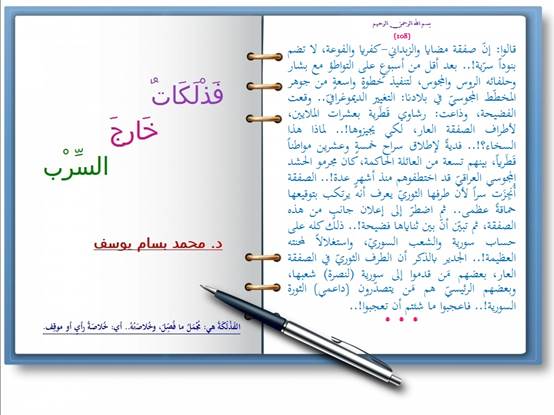 بسم الله الرحمن الرحيم
(108)
قالوا: إنّ صفقة مضايا والزبداني-كفريا والفوعة، لا تضم
بنوداً سرّية!.. بعد أقل من أسبوعٍ على التواطؤ مع بشار
وحلفائه الروس والمجوس، لتنفيذ خطوةٍ واسعةٍ من جوهر
المخطّط المجوسيّ في بلادنا: التغيير الديموغرافيّ.. وقعت
الفضيحة، وذاعت: رشاوي قَطَرية بعشرات الملايين،
لأطراف الصفقة العار، لكي يجيزوها!.. لماذا هذا
السخاء؟!.. فديةً لإطلاق سراح خمسةٍ وعشرين مواطناً
قطرياً، بينهم تسعة من العائلة الحاكمة، كان مجرمو الحشد
المجوسي العراقيّ قد اختطفوهم منذ أشهرٍ عدة!.. الصفقة
أُنجِزَت سراً لأن طرفها الثوريّ يعرف أنه يرتكب بتوقيعها
حماقةً عظمى.. ثم اضطرّ إلى إعلان جانبٍ من هذه
الصفقة، ثم تبيّن أنّ بين ثناياها فضيحة!.. ذلك كله على
حساب سورية والشعب السوريّ، واستغلالاً لمحنته
العظيمة!.. الجدير بالذكر أن الطرف الثوريّ في الصفقة
العار، بعضهم مَن قدموا إلى سورية (لنصرة) شعبها،
وبعضهم الرئيسيّ هم مَن يتصدّرون (داعمي) الثورة
السورية!.. فاعجبوا ما شئتم أن تعجبوا!..
* * *
فَذْلَكَاتٌ
خَارجَ
السِّرْب
د. محمد بسام يوسف
الفَذْلَكَةُ هي: مُجْمَلُ ما فُصِّلَ، وخُلاصَتُهُ.. أي: خُلاصَةُ رأيٍ أو موقِف.